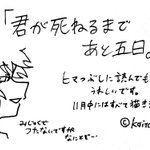 「君が死ねるまで
あと五日。
ヒマつぶしに読んでも
うれしいです。
11月中にはすべて描き
みじゅくで
つたないですが
なにとぞ…
©kaito